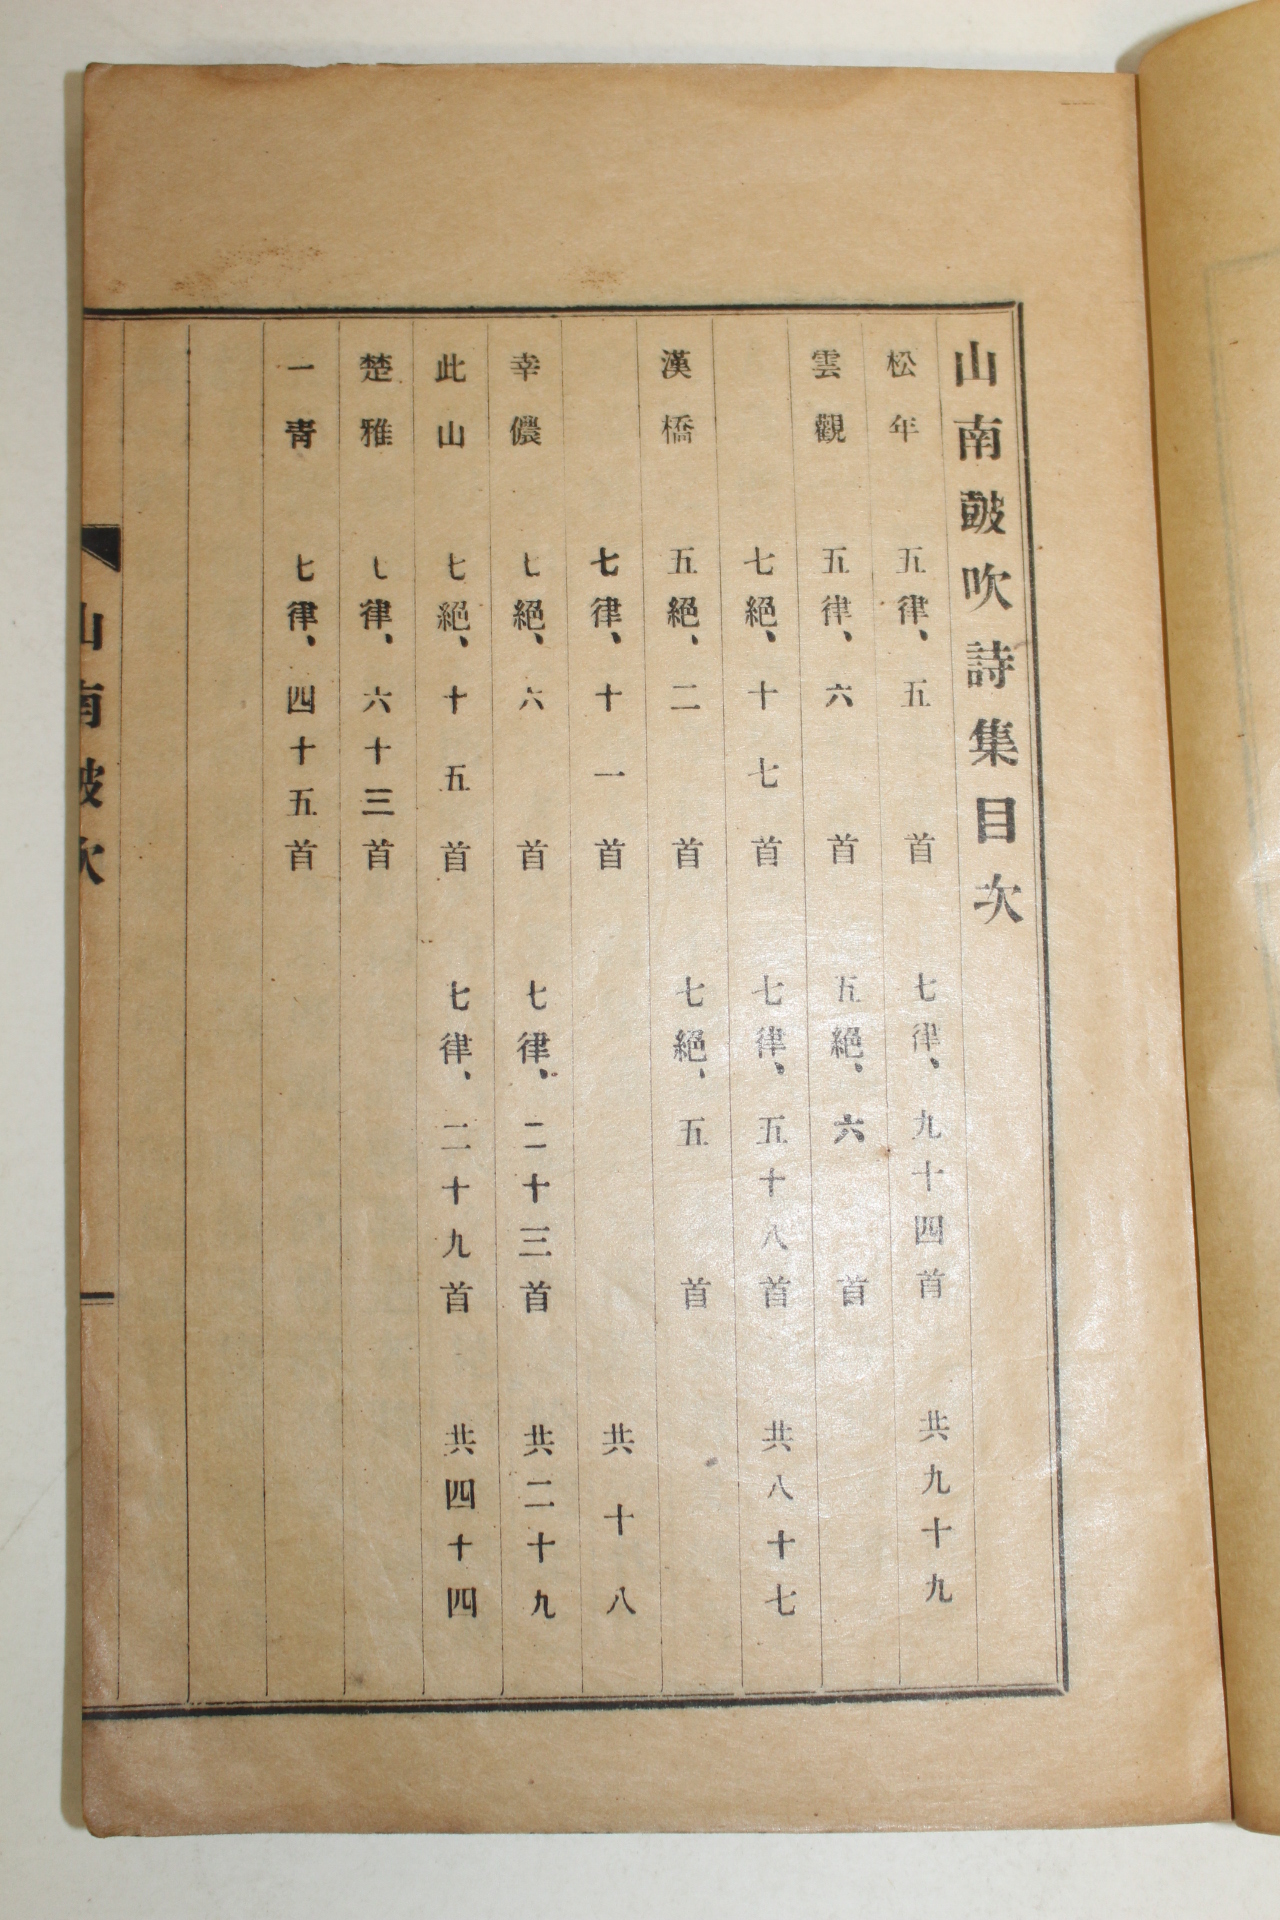 山南皷吹詩集目次
松年 五律、五首 七律、九十四首 共九十九
雲觀 五律、六首 五絕、六首
七絕、十七首 七律、五十八首 共八十七
漢橋 五絕、二首 七絕、五首
七律、十一首 共十八
幸儂 七絕、六首 七律、二十三首 共二十九
此山 七絕、十五首 七律、二十九首 共四十四
楚雅 七律、六十三首
一靑 七律、四十五首
山南皷吹